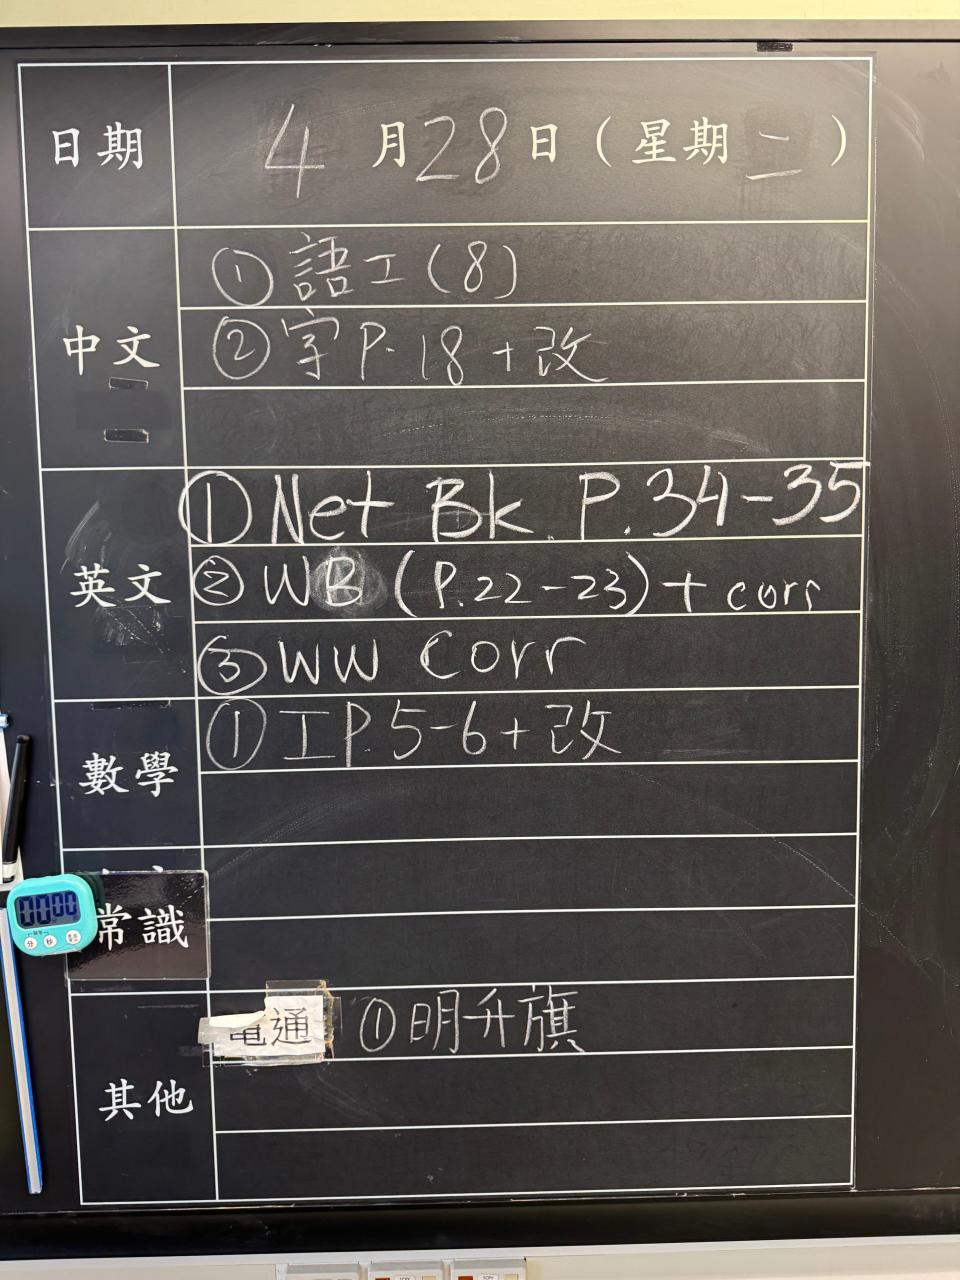 日期 4月28日(星期二)
中文
①語工(8)
②字P.18+改
英文
①Net Bk. P.34-35
②WB (P.22-23)+corr
③WW Corr
數學
①工P.5-6+改
常識
00:00
分 秒
其他
電通 ①明升旗